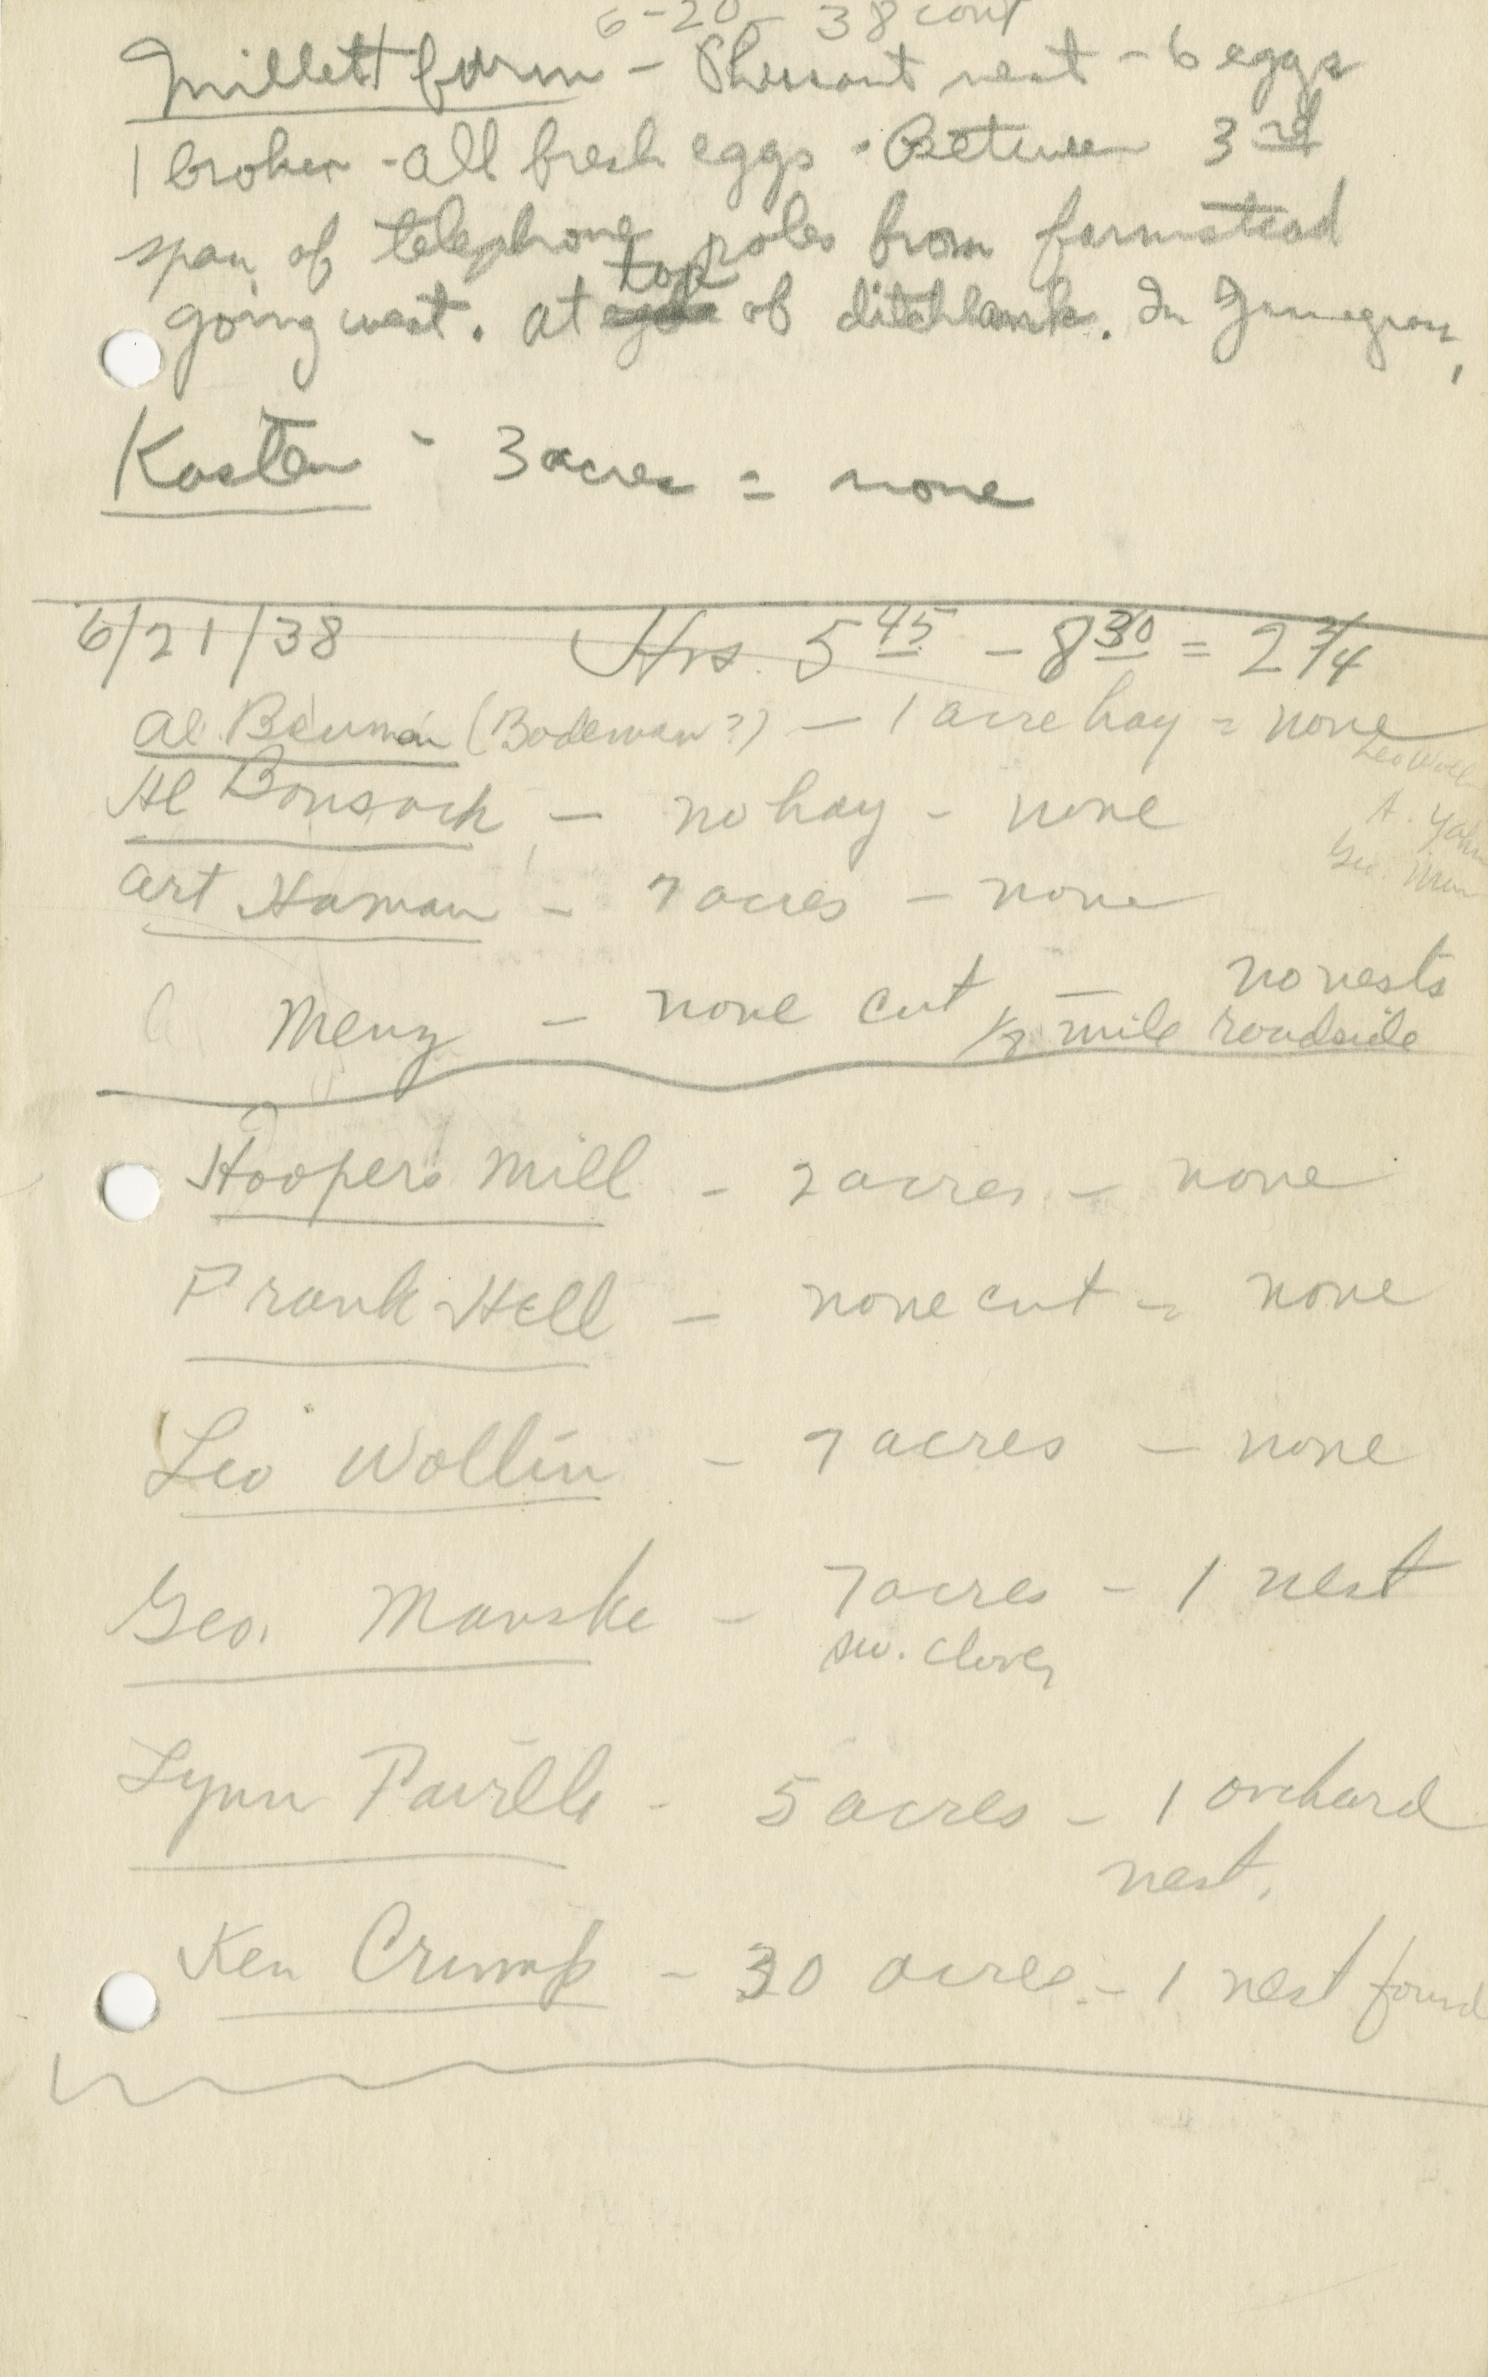 6-20-38 cont
Millett farm - Pheasant nest - 6 eggs
1 broken - all fresh eggs - Between 3rd
span of telephone poles from farmstead
going west. At top of ditchbank. In Junegrass,
Kasten - 3 acres = none
6/21/38 Hrs. 5 45 - 8 30 = 2 3/4
Al Bauman (Bodeman?) - 1 acre hay = none
Leo Woll
Al Bonsack - no hay - none
A. Yahn
Geo. Man
Art Haman - 7 acres - none
no nests
Menz - none cut - 1/2 mile roadside
Hoopers Mill - 2 acres - none
Frank Hell - none cut - none
Leo Wollin - 7 acres - none
Geo. Manske - 7 acres - 1 nest
sw. clover
Lynn - 5 acres - 1 orchard
nest.
Ken Crump - 30 acres - 1 nest found